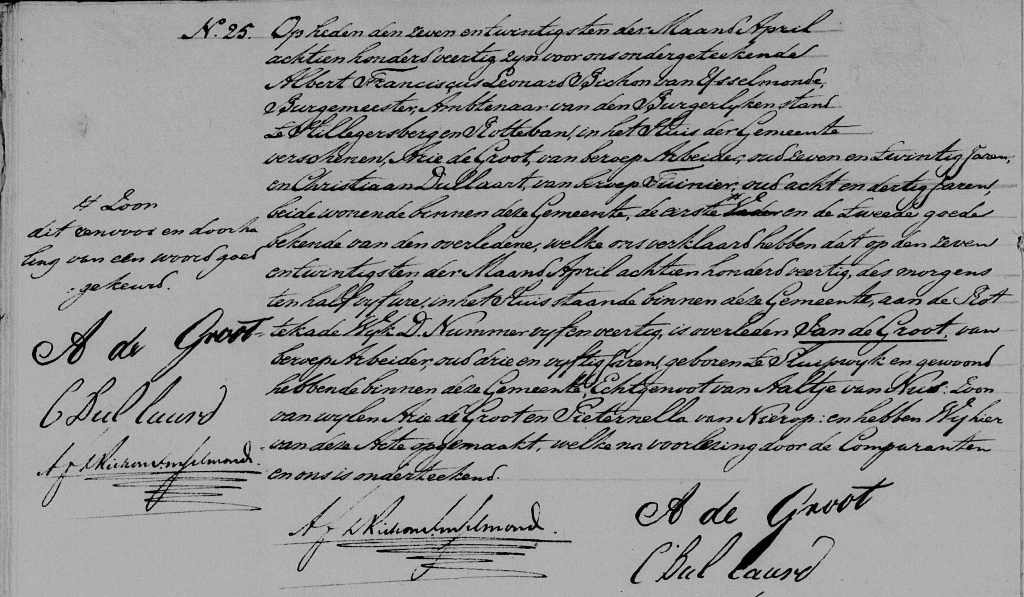 N.º 25. Op heden den zeven en twintigsten der Maand April
achtien honderd veertig zyn voor ons ondergeteekende
Albert Franciscus Leonard Bichon van Ysselmonde,
Burgemeester, Ambtenaar van den Burgerlyken stand
te Hillegersberg en Rotteban, in het Huis der Gemeente
verschenen, Arie de Groot, van beroep Arbeider, oud zeven en twintig Jaren,
en Christiaan Dullaart, van beroep Tuinier, oud acht en dertig Jaren,
beide wonende binnen deze Gemeente, de eerste Vader en de tweede goede
bekende van den overledene, welke ons verklaard hebben dat op den zeven
en twintigsten der Maand April achtien honderd veertig, des morgens
ten half vyf ure, in het Huis staande binnen deze Gemeente, aan de Rot
tekade Wyk D. Nummer vyf en veertig, is overleden Jan de Groot, van
beroep Arbeider, oud drie en vyftig Jaren, geboren te Kluiswyk en gewoond
hebbende binnen deze Gemeente, Echtgenoot van Aaltje van Nes. Zoon
van wylen Arie de Groot en Pieternella van Nierop: en hebben Wij hier
van deze Acte opgemaakt, welke na voorlezing door de Comparanten
en ons is onderteekend.
# Zoon
dit renvooi en doorha
ling van een woord goed
gekeurd.
A de Groot
C Dullaard
A F L Bichon v Ysselmonde.
A F L Bichon v Ysselmonde.
A de Groot
C Dullaard